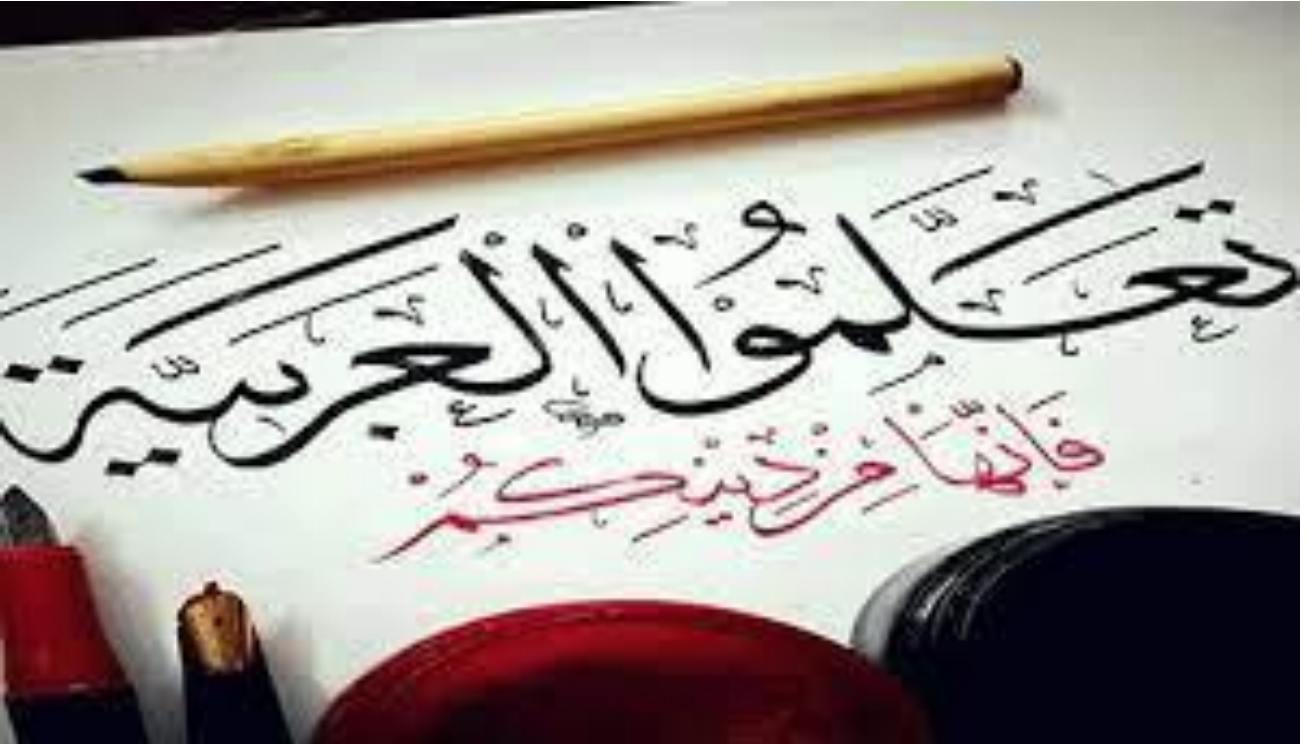 تَعَلَّمُوْا الْعَرَبِيَّة
فَإِنَّهَا مِنْ دِيْنِكُمْ